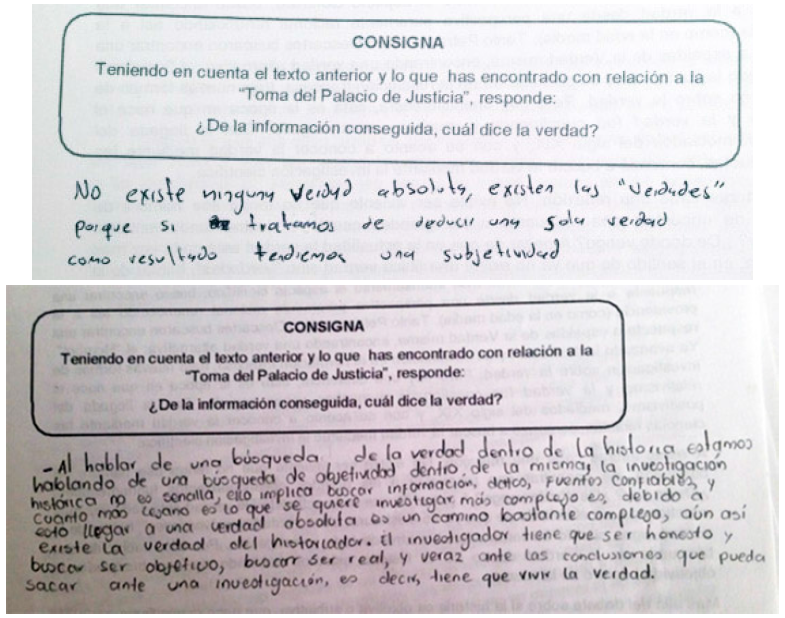 CONSIGNA
Teniendo en cuenta el texto anterior y lo que has encontrado con relación a la
"Toma del Palacio de Justicia", responde:
¿De la información conseguida, cuál dice la verdad?
No existe ninguna verdad absoluta, existen las "verdades"
porque si tratamos de deducir una sola verdad
como resultado tendremos una subjetividad
CONSIGNA
Teniendo en cuenta el texto anterior y lo que has encontrado con relación a la
"Toma del Palacio de Justicia", responde:
¿De la información conseguida, cuál dice la verdad?
- Al hablar de una búsqueda de la verdad dentro de la historia estamos
hablando de una búsqueda de objetividad dentro de la misma, la investigación
histórica no es sencilla, ello implica buscar información, datos, fuentes confiables, y
cuanto más lejano es lo que se quiere investigar más complejo es, debido a
esto llegar a una verdad absoluta es un camino bastante complejo, aún así
existe la verdad del historiador. El investigador tiene que ser honesto y
buscar ser objetivo, buscar ser real, y veraz ante las conclusiones que pueda
sacar ante una investigación, es decir, tiene que vivir la verdad.